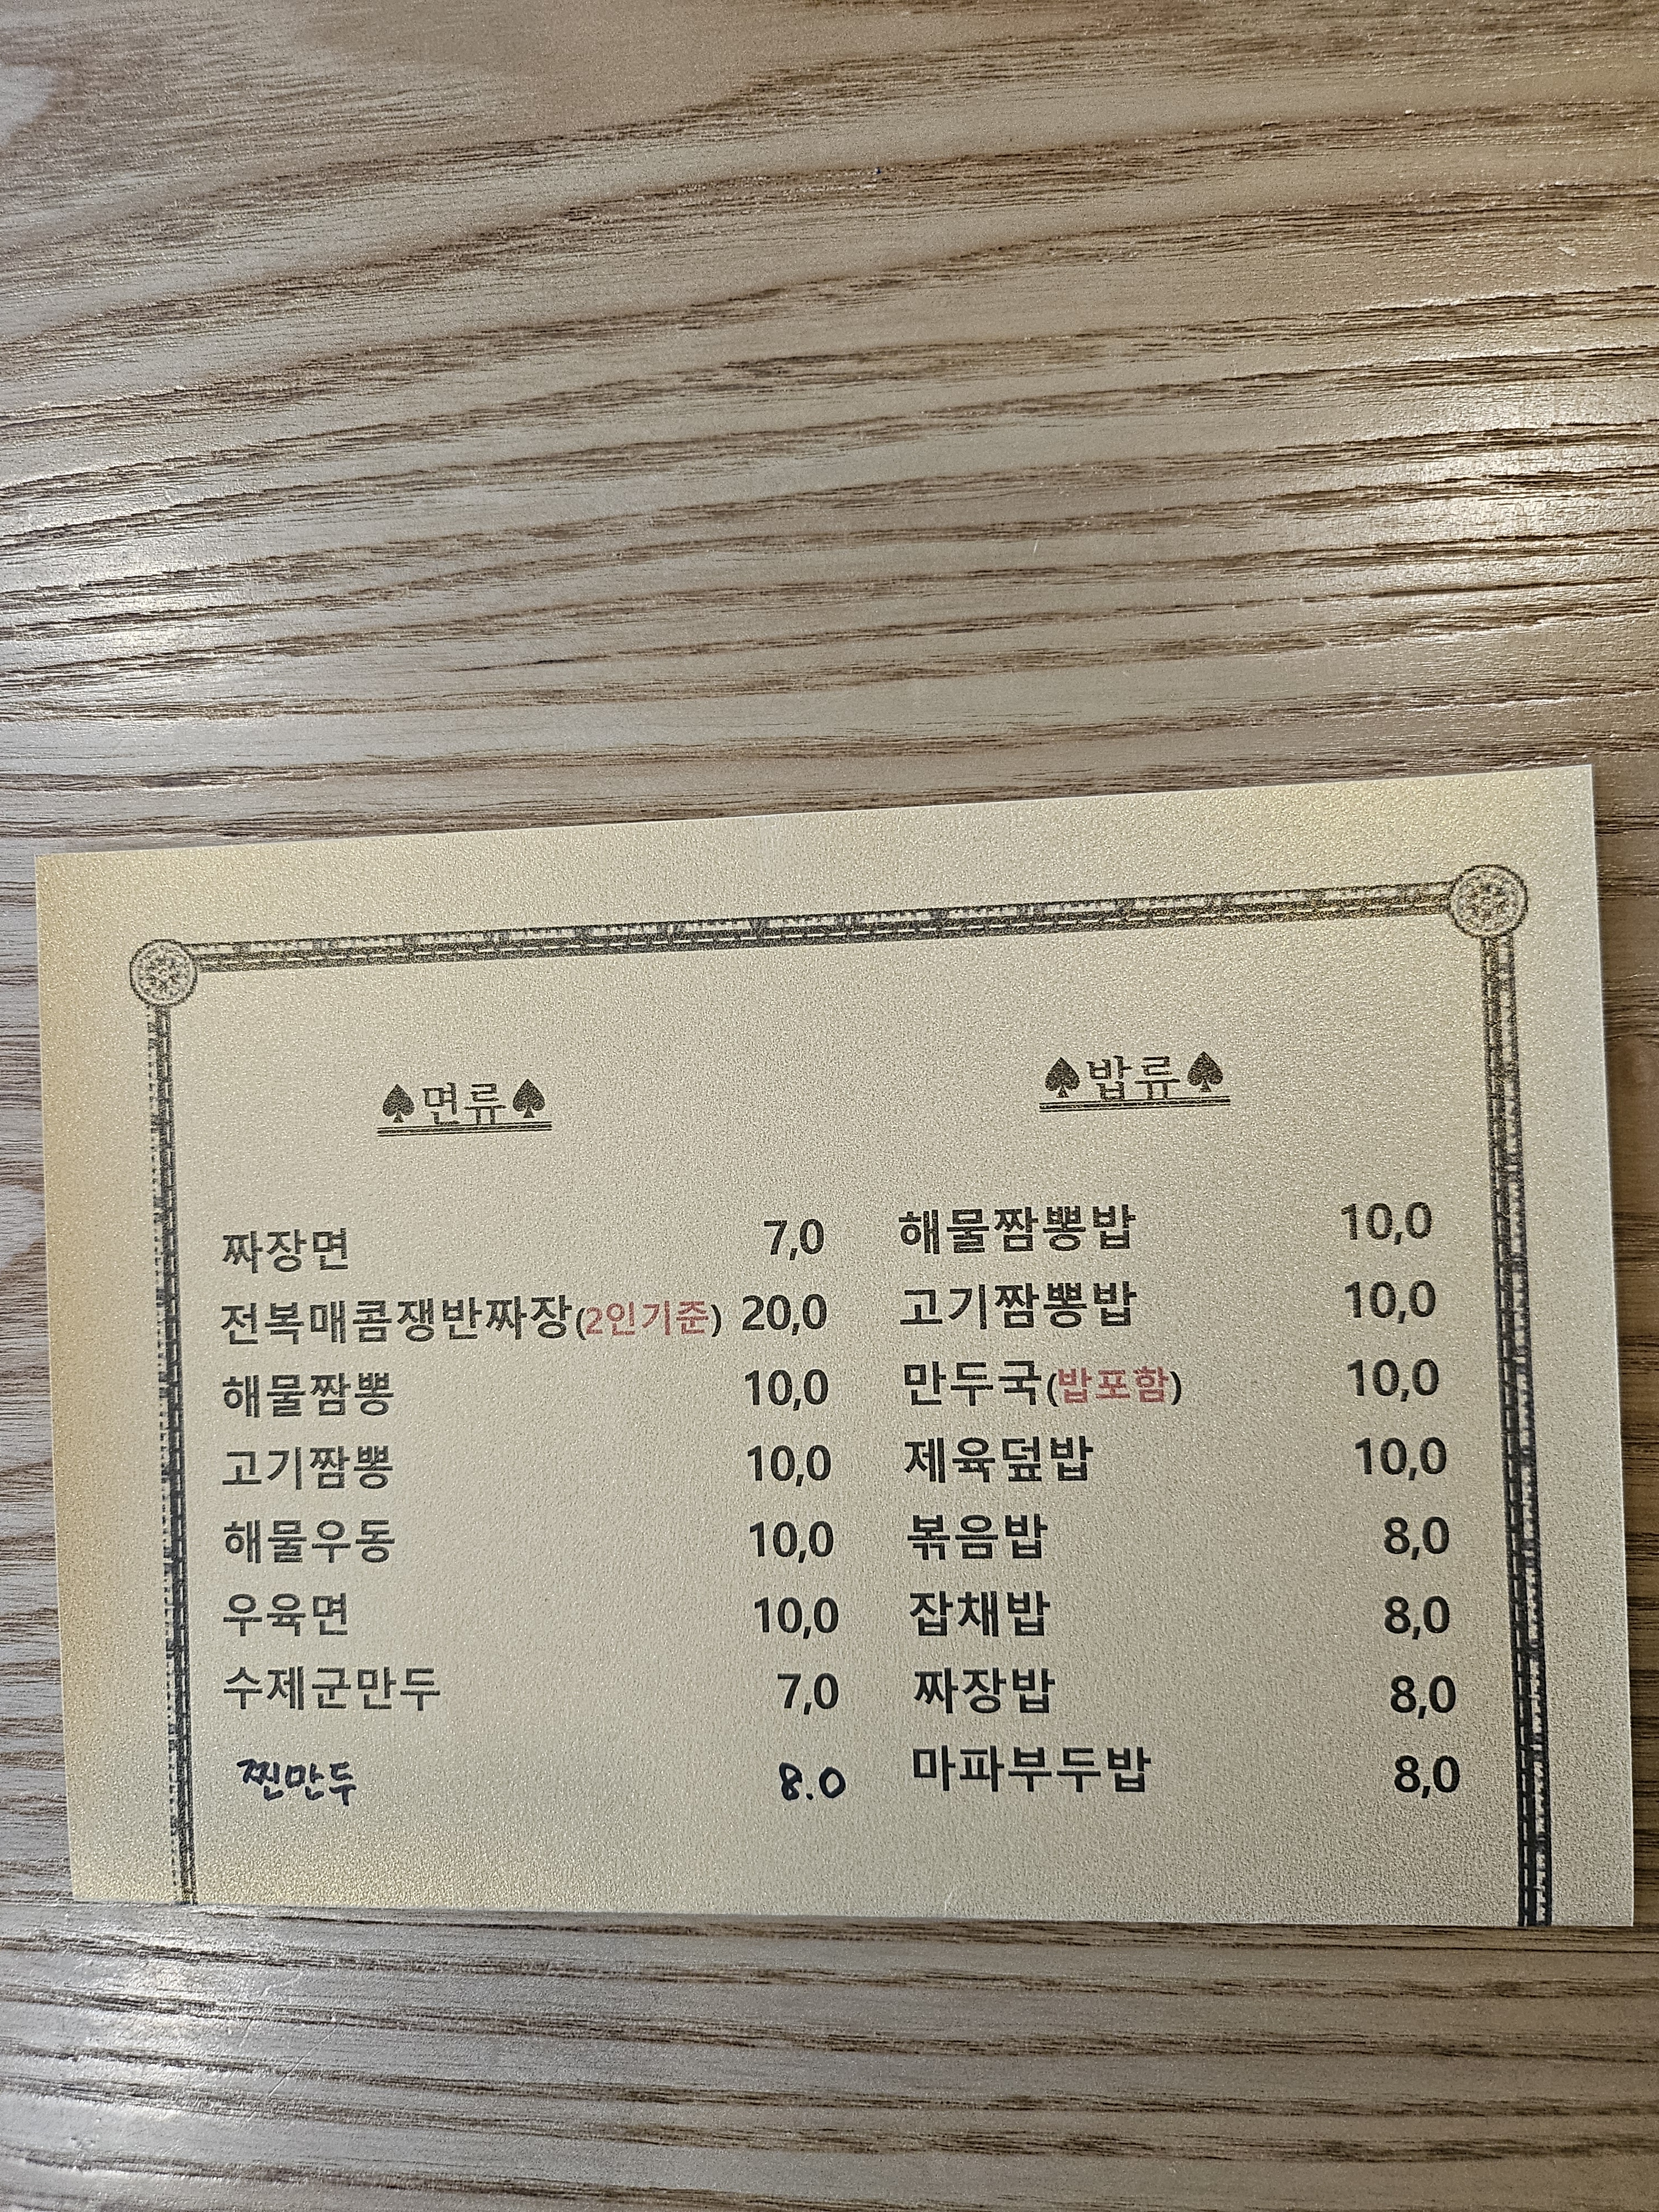 ♠면류♠
짜장면 7,0
전복매콤쟁반짜장(2인기준) 20,0
해물짬뽕 10,0
고기짬뽕 10,0
해물우동 10,0
우육면 10,0
수제군만두 7,0
찐만두 8.0
♠밥류♠
해물짬뽕밥 10,0
고기짬뽕밥 10,0
만두국(밥포함) 10,0
제육덮밥 10,0
볶음밥 8,0
잡채밥 8,0
짜장밥 8,0
마파부두밥 8,0